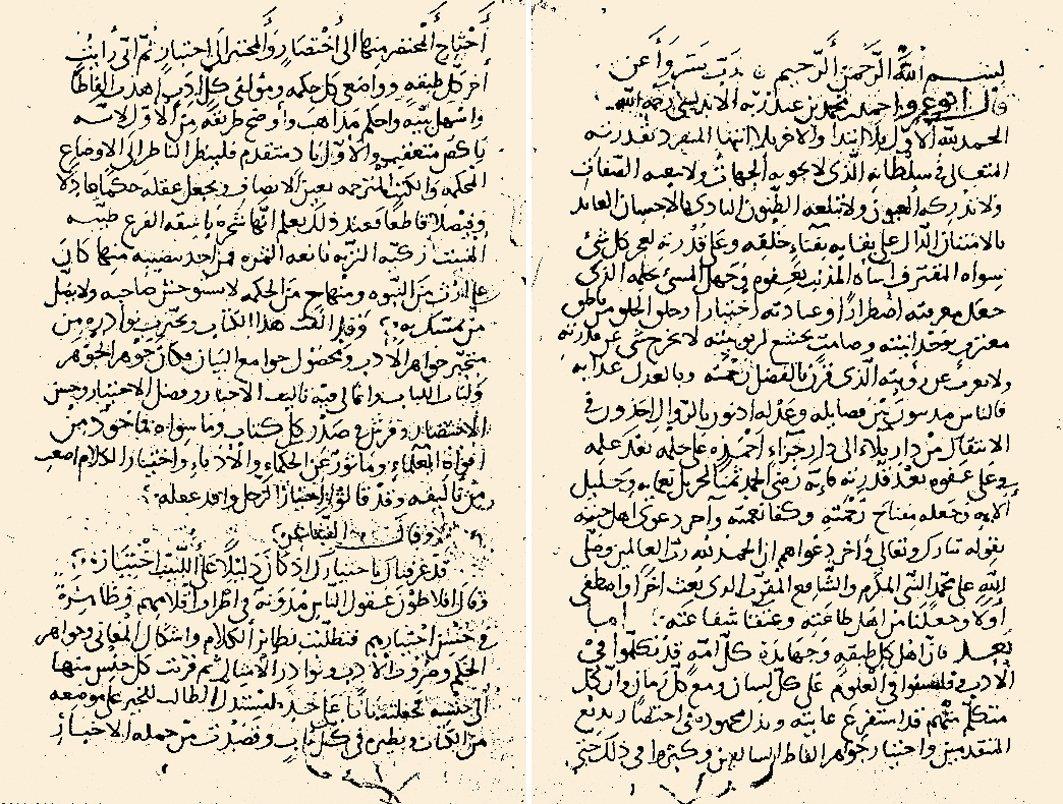 بسم الله الرحمن الرحيم رب يسر وأعن
قال ابو عمر احمد بن محمد بن عبد ربه الاندلسي رحمه الله
الحمد لله الاول بلا ابتدا والاخر بلا انتها المنفرد بقدرته
المتعالي في سلطانه الذي لا تحويه الجهات ولا تنعته الصفات
ولا تدركه العيون ولا تبلغه الظنون البادي بالاحسان العايد
بالامتنان الدال على بقايه بفناء خلقه وعلى قدرته بعجز كل شئ
سواه المغتفر اساة المذنب بعفوه وجهل المسئ بحلمه الذي
جعل معرفته اضطرارا وعبادته اختيارا وخلق الخلق من ناطق
معترف بوحدانيته وصامت متخشع لربوبيته لا يخرج شي عن قدرته
ولا يعزب عن رويته الذي قرن بالفضل رحمته وبالعدل عذابه
فالناس مدينون بين فضله وعدله اذنون بالزوال اخذون في
الانتقال من دار بلاء الى دار جزاء احمده على حلمه بعد علمه
وعلى عفوه بعد قدرته فانه رضي الحمد ثمنا لجزيل نعمايه وجليل
الايه وجعله مفتاح رحمته وكفا نعمته وآخر دعوى اهل جنته
بقوله تبارك وتعالى وآخر دعواهم ان الحمد لله رب العالمين وصلى
الله على محمد النبي المكرم والشافع المقرب الذي بعث اخرا واصطفي
أولا وجعلنا من اهل طاعته وعتقا شفاعته اما
بعد فان اهل كل طبقة وجهابذة كل امة قد تكلموا في
الادب وفلسفوا في العلوم على كل لسان ومع كل زمان وان كل
متكلم منهم قد استفرغ غايته وبذل مجهوده في اختصار بديع
المتقدمين واختيار جواهر الفاظ السالفين وكثروا في ذلك حتى
أحتاج المختصر منها الى أختصار والمختير الى اختيار ثم اني رأيت
آخر كل طبقة وواضعي كل حكمة ومؤلفي كل أدب اهذب الفاظا
واسهل بنية واحكم مذاهب وأوضح طريقة من الاول لانه
ناكص متعقب والأول باد متقدم فلينظر الناظر الى الاوضاع
المحكمة والكتب المترجمة بعين الانصاف ثم يجعل عقله حكما عادلا
وفيصلا قاطعا فعند ذلك يعلم انها شجرة باسقة الفرع طيبة
المنبت زكية التربة يانعة الثمرة فمن اخذ بنصيبه منها كان
على ارث من النبوة ومنهاج من الحكمة لا يستوحش صاحبه ولا يضل
من تمسك به وقد الفت هذا الكتاب وتخيرت نوادره من
متخير جواهر الأدب ومحصول جوامع البيان فكان جوهر الجوهر
ولباب اللباب وانما لي فيه تاليف الاخبار وفضل الاختيار وحسن
الاختصار وفرش في صدر كل كتاب وما سواه فماخوذ من
أفواه العلماء وماثور عن الحكماء والأدباء واختيار الكلام اصعب
من تاليفه وقد قالوا اختيار الرجل وافد عقله
وقال الشاعر
قد عرفناك باختيارك اذ كان دليلا على اللبيب اختياره
وقال افلاطون عقول الناس مدونة في اطراف أقلامهم وظاهرة
في حسن اختيارهم فتطلبت نظائر الكلام واشكال المعاني وجواهر
الحكم وضروب الأدب ونوادر الامثال ثم قرنت كل جنس منها
الى جنسه فجعلته بابا على حدته ليستدل الطالب للخبر على موضعه
من الكتاب ونظيره في كل باب وقصدت من جملة الاخبار